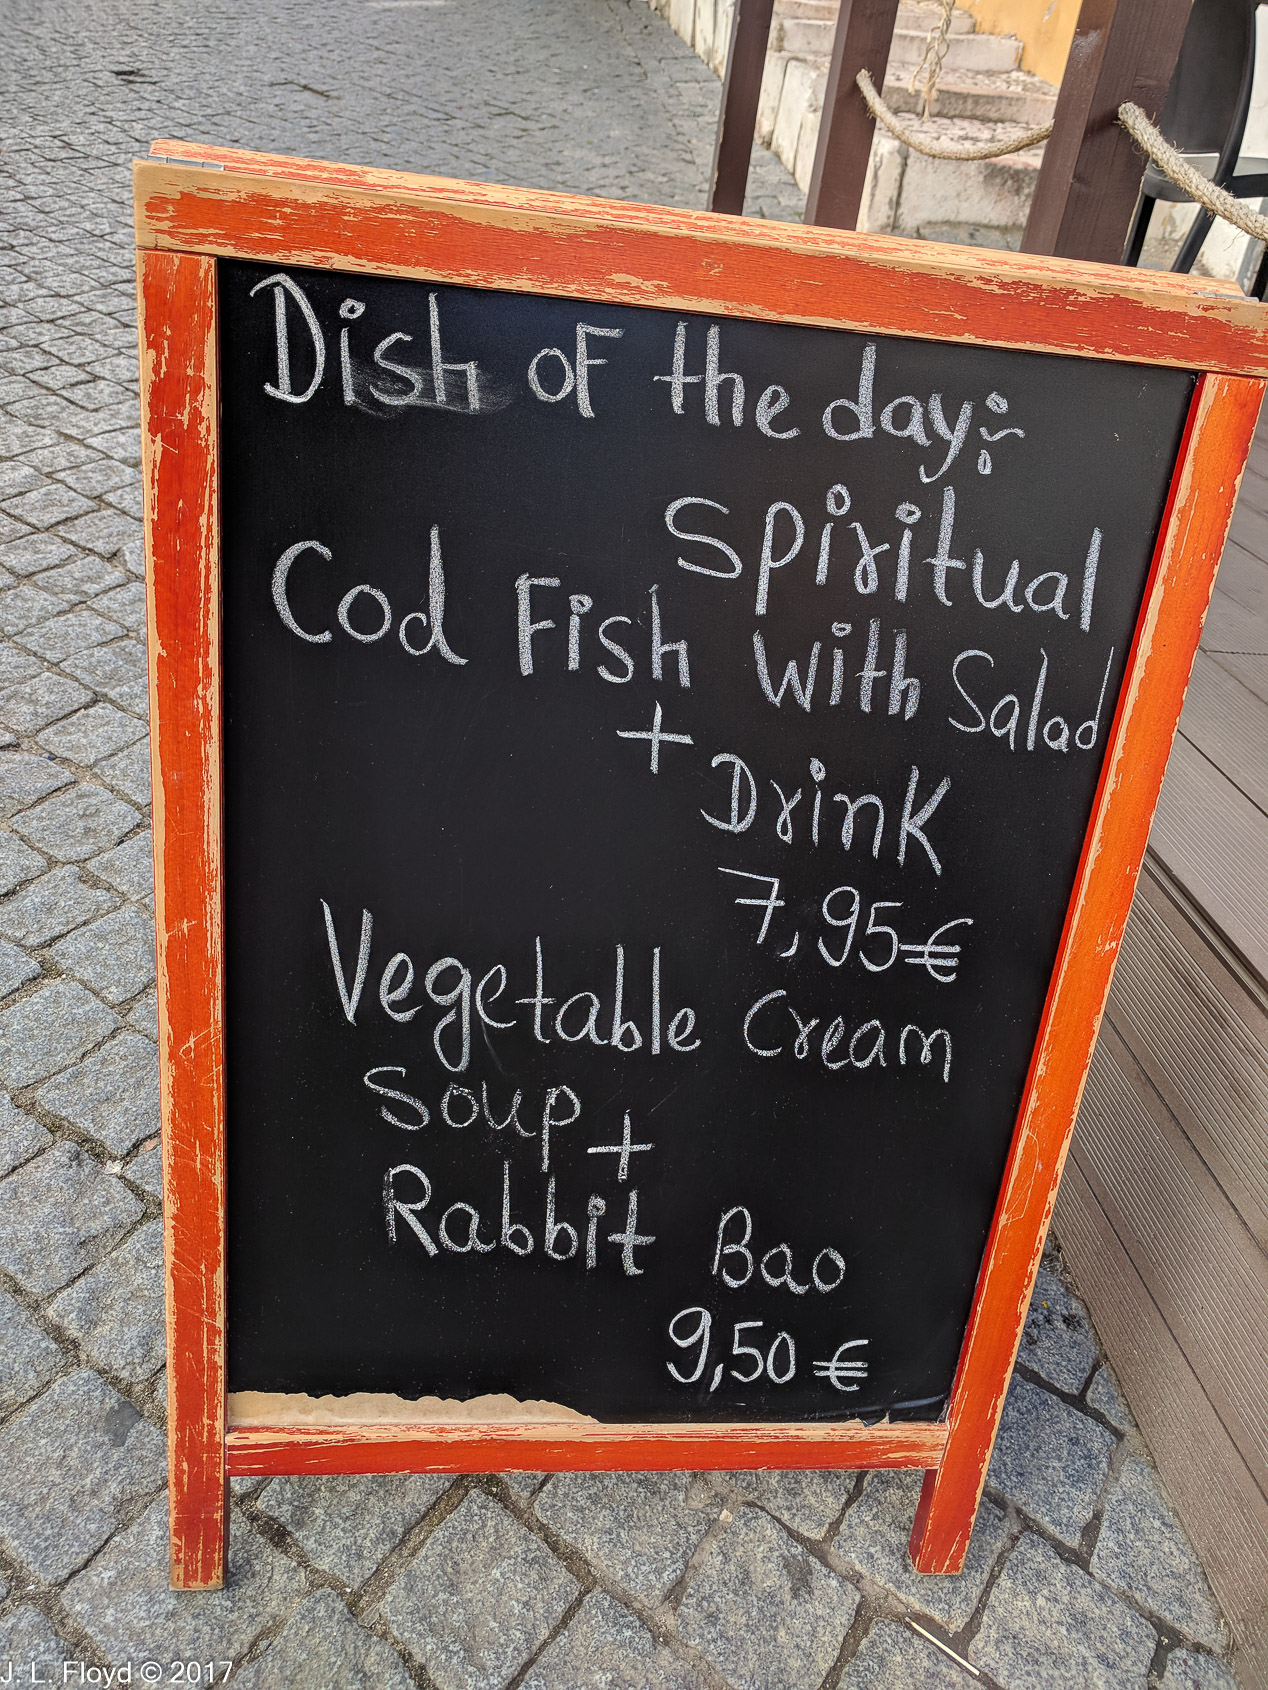 Dish of the day:~
Spiritual
Cod Fish with Salad
+ Drink
7,95€
Vegetable Cream
Soup +
Rabbit Bao
9,50 €
J. L. Floyd © 2017